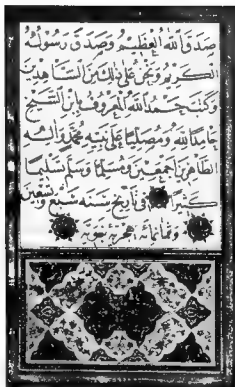 صدق الله العظيم وصدق رسوله
الكريم ونحن على ذلك من الشاهدين
وكتبه حمد الله المعروف بابن الشيخ
حامدا لله ومصليا على نبيه محمد وآله
الطاهرين أجمعين ومسلما وسلم تسليما
كثيرا في تاريخ سنة سبع وتسعين
وثمانمائة هجرية نبوية